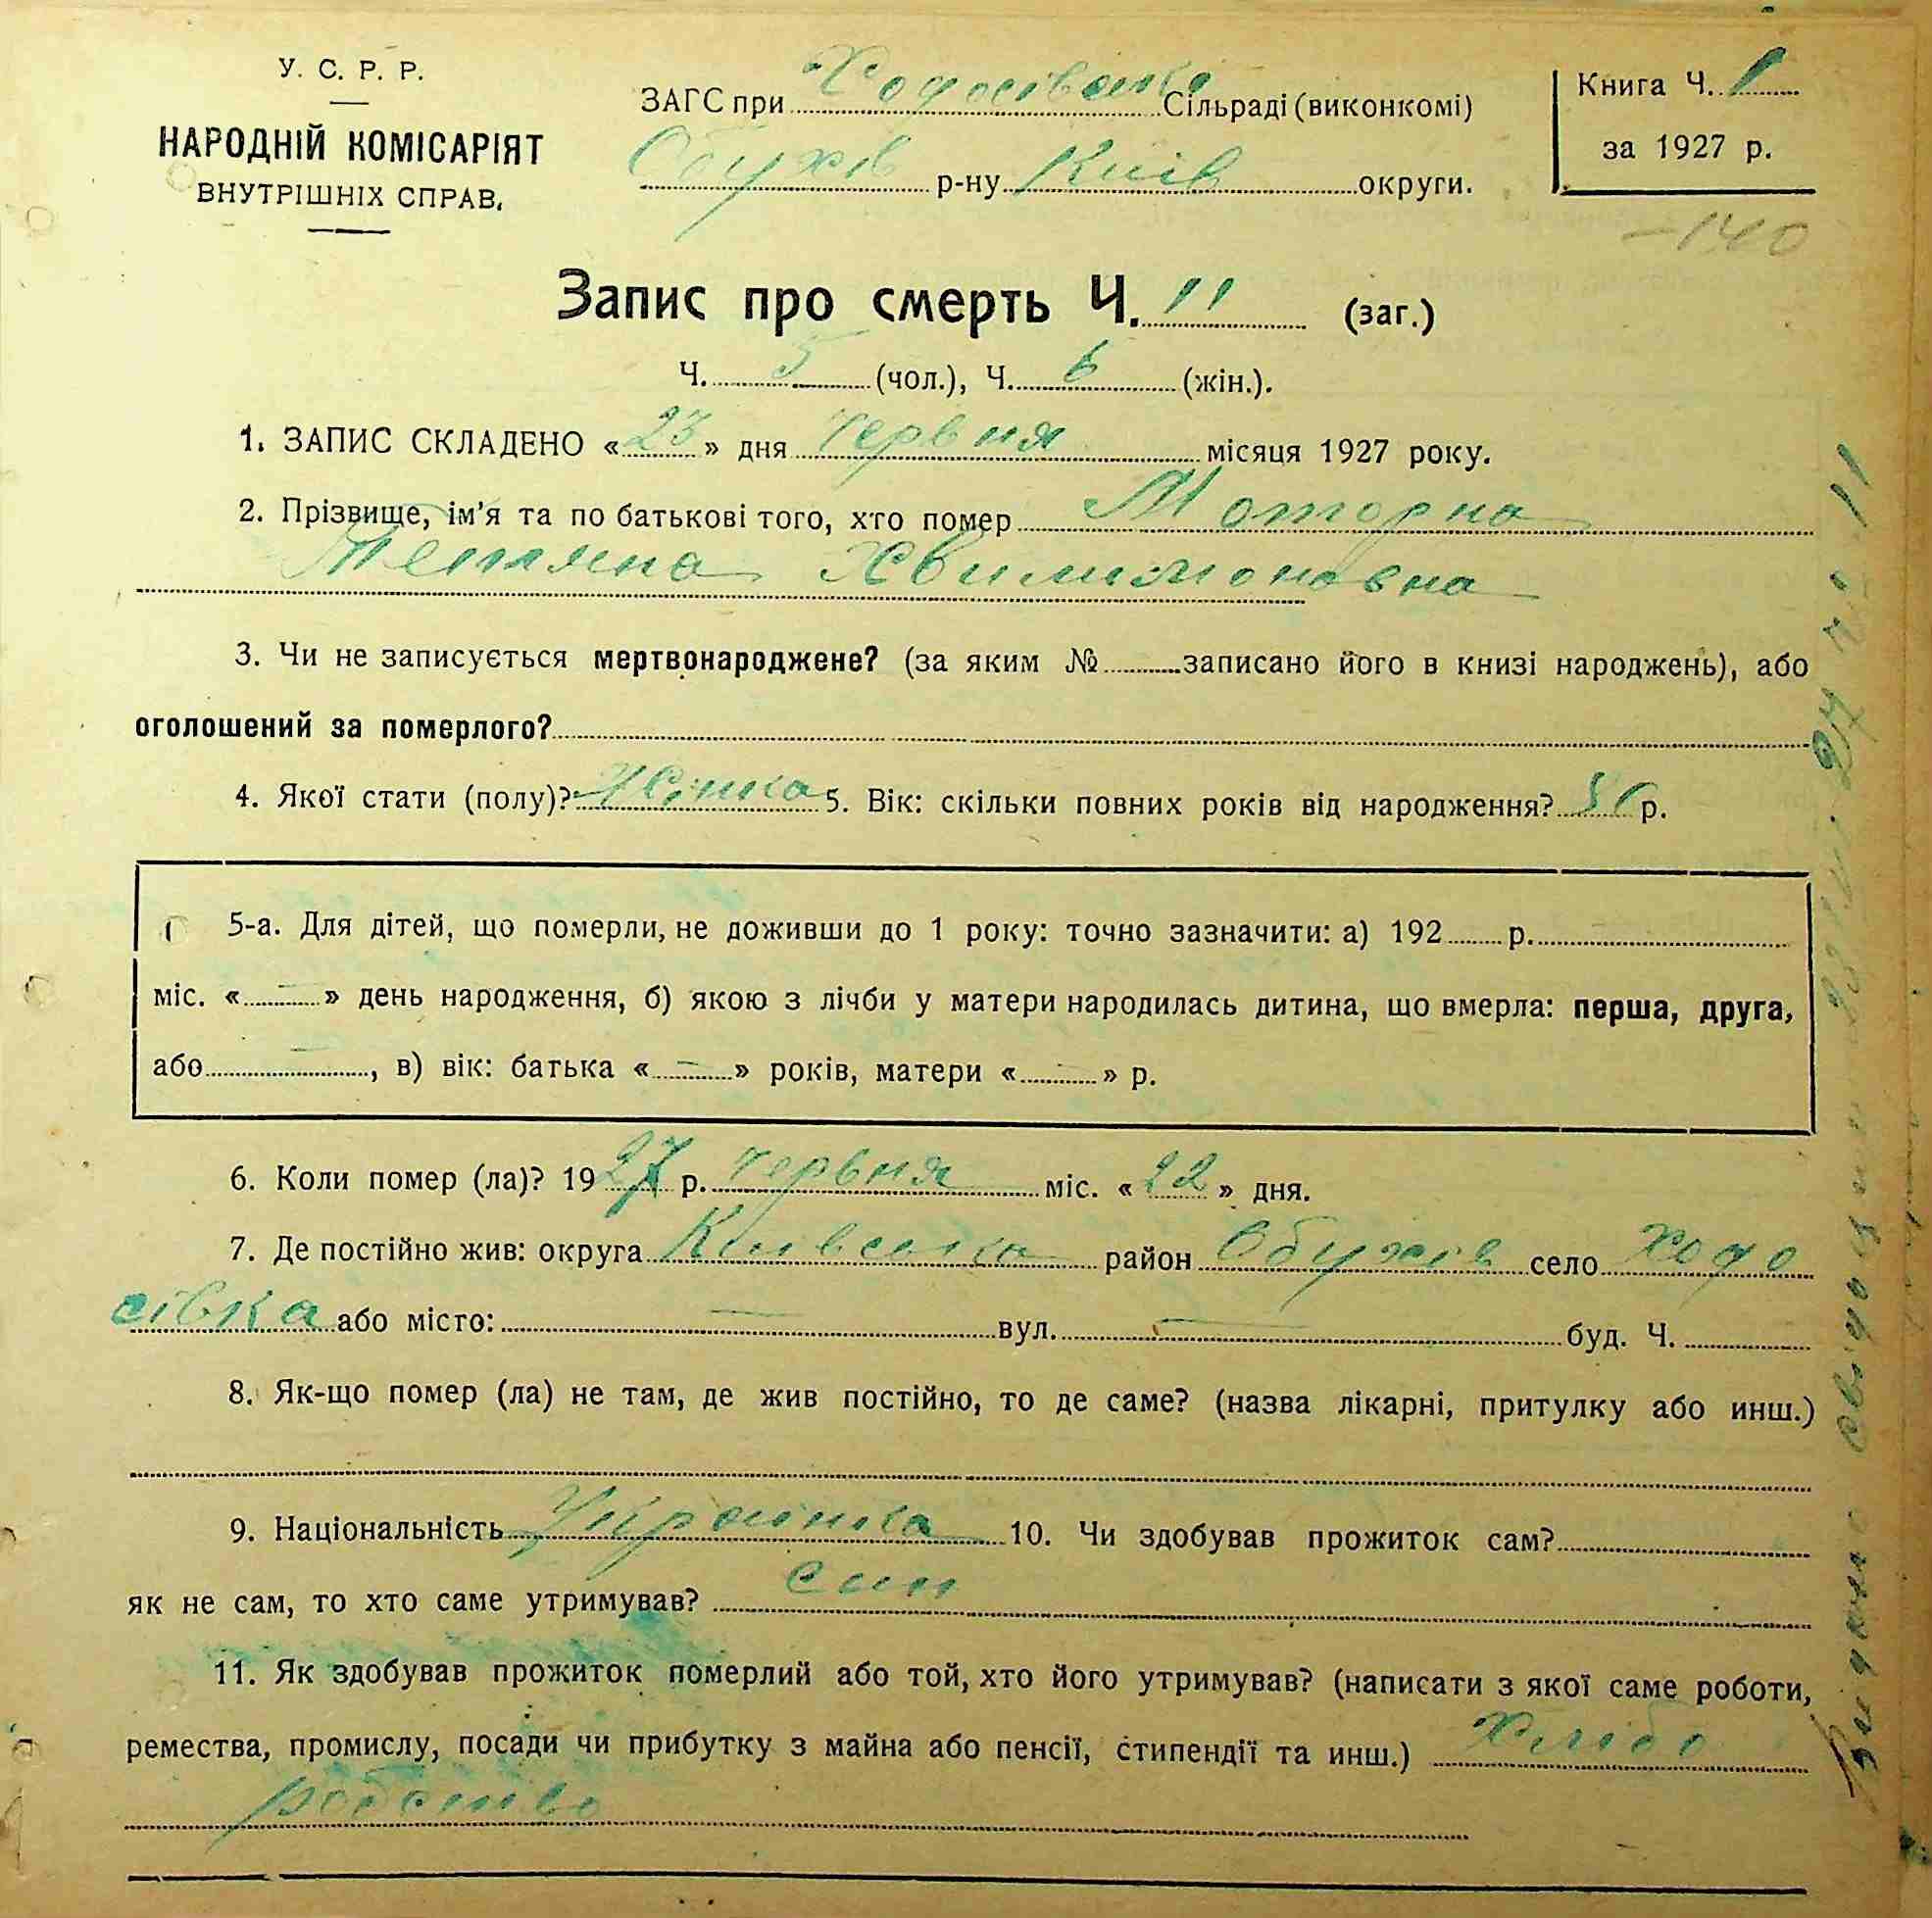 У. С. Р. Р.
НАРОДНІЙ КОМІСАРІЯТ
ВНУТРІШНІХ СПРАВ.
ЗАГС при Ходосівській Сільраді (виконкомі)
Обухів р-ну Київ округи.
Книга Ч. 1
за 1927 р.
140
Запис про смерть Ч. 11 (заг.)
Ч. 5 (чол.), Ч. 6 (жін.).
1. ЗАПИС СКЛАДЕНО «23» дня Червня місяця 1927 року.
2. Прізвище, ім'я та по батькові того, хто помер Моторна
Тетяна Хвилимоновна
3. Чи не записується мертвонароджене? (за яким № записано його в книзі народжень), або
оголошений за померлого?
4. Якої стати (полу)? Жінка 5. Вік: скільки повних років від народження? р.
5-а. Для дітей, що померли, не доживши до 1 року: точно зазначити: а) 192 р.
міс. « — » день народження, б) якою з лічби у матери народилась дитина, що вмерла: перша, друга,
або —, в) вік: батька « — » років, матери « — » р.
6. Коли помер (ла)? 1927 р. Червня міс. «22» дня.
7. Де постійно жив: округа Київська район Обухів село Ходо
сівка або місто: — вул. — буд. Ч.
8. Як-що помер (ла) не там, де жив постійно, то де саме? (назва лікарні, притулку або инш.)
9. Національність Українка 10. Чи здобував прожиток сам?
як не сам, то хто саме утримував? син
11. Як здобував прожиток померлий або той, хто його утримував? (написати з якої саме роботи,
ремества, промислу, посади чи прибутку з майна або пенсії, стипендії та инш.) Хлібо
робство